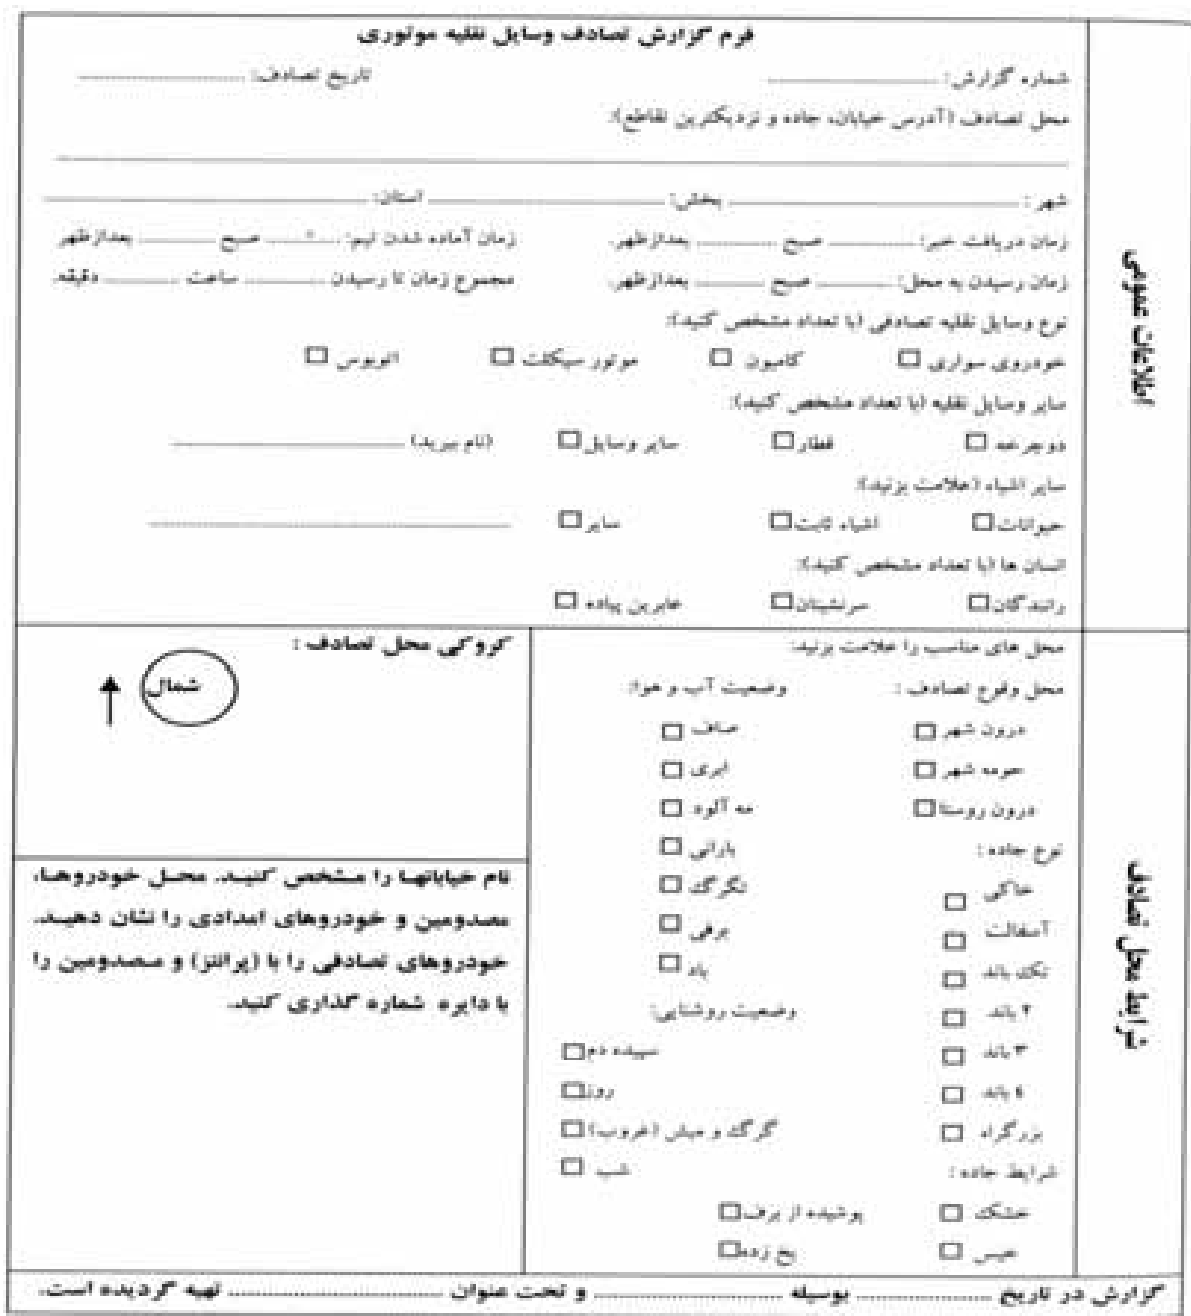 فرم گزارش تصادف وسایل نقلیه موتوری
شماره گزارش: .................... تاریخ تصادف: ....................
محل تصادف (آدرس خیابان، جاده و نزدیکترین تقاطع):
شهر : .................... بخش: .................... استان: ....................
زمان دریافت خبر: ............ صبح ............ بعدازظهر. زمان آماده شدن تیم: ............ صبح ............ بعدازظهر
زمان رسیدن به محل: ............ صبح ............ بعدازظهر. مجموع زمان تا رسیدن ............ ساعت ............ دقیقه.
نوع وسایل نقلیه تصادفی (با تعداد مشخص کنید):
خودروی سواری □ کامیون □ موتور سیکلت □ اتوبوس □
سایر وسایل نقلیه (با تعداد مشخص کنید):
دوچرخه □ قطار □ سایر وسایل □ (نام ببرید) ....................
سایر اشیاء (علامت بزنید):
حیوانات □ اشیاء ثابت □ سایر □ ....................
انسان ها (با تعداد مشخص کنید):
رانندگان □ سرنشینان □ عابرین پیاده □
اطلاعات عمومی
محل های مناسب را علامت بزنید:
محل وقوع تصادف : وضعیت آب و هوا:
درون شهر □ صاف □
حومه شهر □ ابری □
درون روستا □ مه آلود □
نوع جاده : بارانی □
خاکی □ تگرگ □
آسفالت □ برفی □
تک باند □ باد □
۲ باند □ وضعیت روشنایی:
۳ باند □ سپیده دم □
٤ باند □ روز □
بزرگراه □ گرگ و میش (غروب) □
شرایط جاده : شب □
خشک □ پوشیده از برف □
خیس □ یخ زده □
شرایط محل تصادف
کروکی محل تصادف :
شمال
نام خیابانها را مشخص کنید. محل خودروها،
مصدومین و خودروهای امدادی را نشان دهید.
خودروهای تصادفی را با (پرانتز) و مصدومین را
با دایره شماره گذاری کنید.
گزارش در تاریخ .................... بوسیله .................... و تحت عنوان .................... تهیه گردیده است.